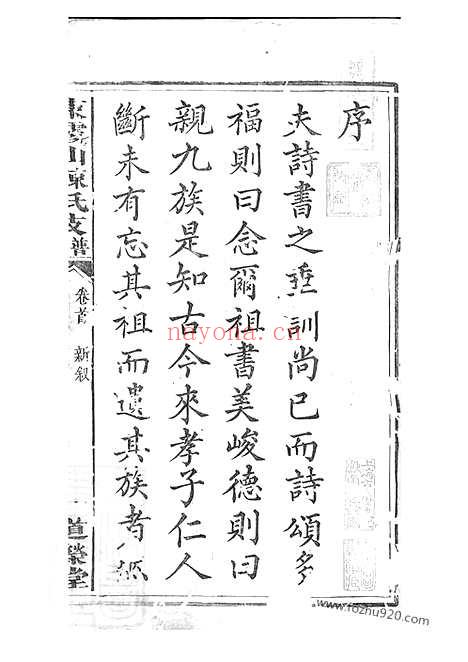 序
夫詩書之垂訓尚已而詩頌多
福則曰念爾祖書美峻德則曰
親九族是知古今來孝子仁人
斷未有忘其祖而遺其族者
山陳氏支譜
卷首
新叙
一
道榮堂
nayona.cn
www.fozhu920.com